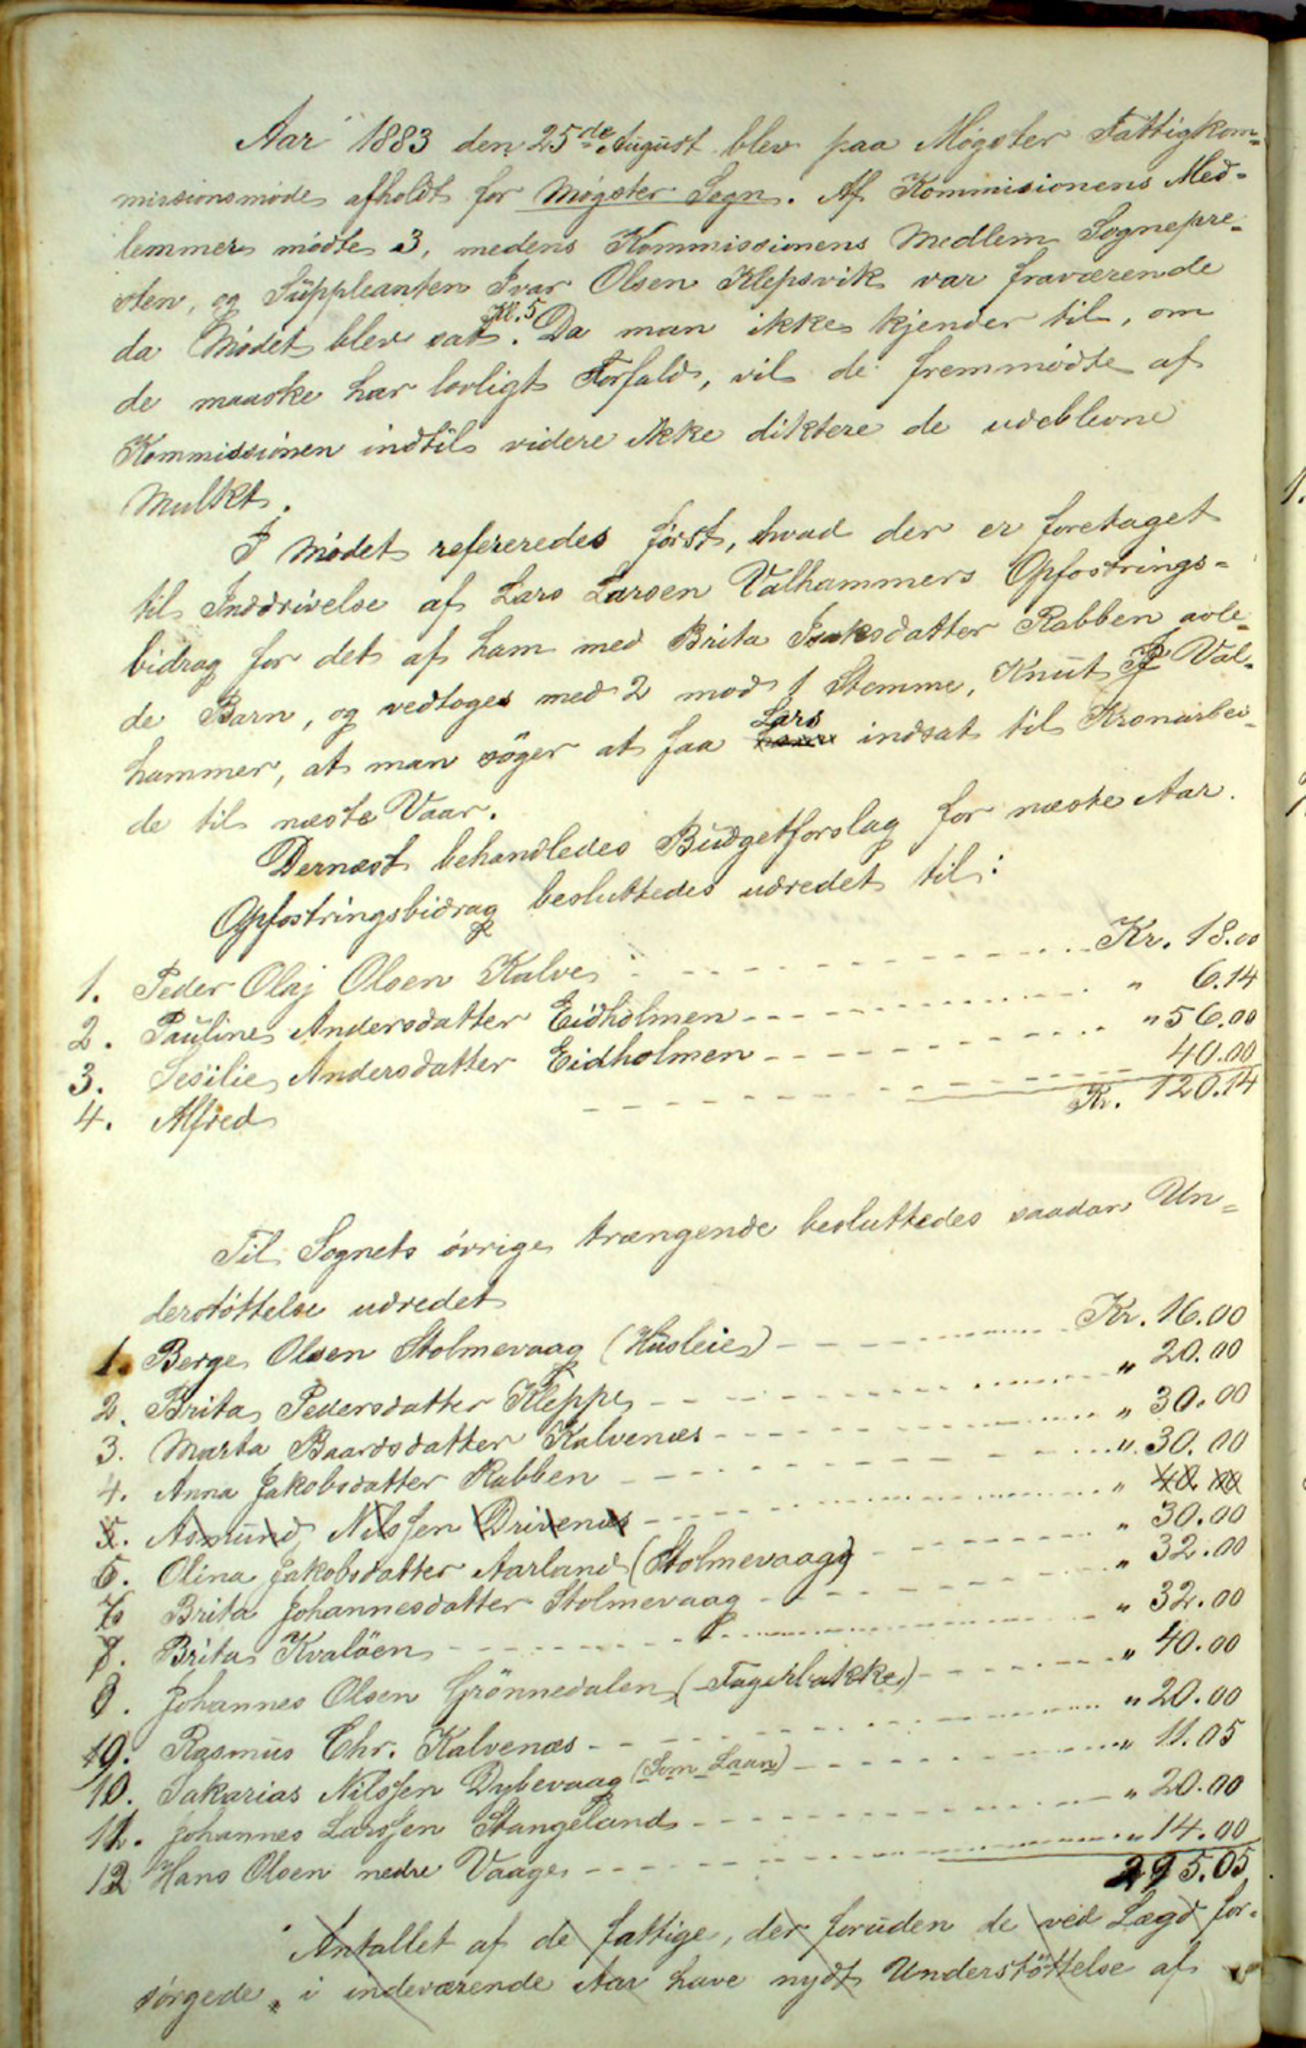 Aar 1883 den 25de August blev paa Møgster Fattigkom-
missionsmøde afholdt for Møgster Sogn. Af Kommisionens Med-
lemmer mødte 3, medens Kommissionens Medlem Sognepre-
sten, og Suppleanten Ivar Olsen Klepsvik var fraværende
da Mødet blev sat Kl. 5. Da man ikke kjender til, om
de maaske har lovligt Forfald, vil de fremmødte af
Kommissionen indtil videre ikke diktere de udeblevne
Mulkt.
I Mødet refereredes først, hvad der er foretaget
til Inddrivelse af Lars Larsen Valhammers Opfostrings-
bidrag for det af ham med Brita Isaksdatter Rabben avle-
de Barn, og vedtoges med 2 mod 1 Stemme, Knut Val-
hammer, at man søger at faa Lars indsat til Kronarbei-
de til næste Vaar.
Dernæst behandledes Budgetforslag for næste Aar.
Opfostringsbidrag besluttedes udredet til:
1. Peder Olaj Olsen Kalve Kr. 18.00
2. Pauline Andersdatter Eidholmen " 6.14
3. Sesilie Andersdatter Eidholmen " 56.00
4. Alfred 40.00
Kr. 120.14
Til Sognets øvrige trængende besluttedes saadan Un-
derstøttelse udredet
1. Berge Olsen Stolmevaag (Husleie) Kr. 16.00
2. Brita Pedersdatter Kleppe " 20.00
3. Marta Baardsdatter Kalvenæs " 30.00
4. Anna Jakobsdatter Rabben " 30.00
5. Asmund Nilssen Drivenæs " 40.00
5. Olina Jakobsdatter Aarland (Stolmevaag) " 30.00
6 Brita Johannesdatter Stolmevaag " 32.00
7. Brita Kvaløen " 32.00
8. Johannes Olsen Grønnedalen (Fagerbakke) " 40.00
9. Rasmus Chr. Kalvenæs " 20.00
10. Sakarias Nilssen Dybevaag (Som Laan) " 11.05
11. Johannes Larssen Stangeland " 20.00
12 Hans Olsen nedre Vaage " 14.00
295.05
Antallet af de fattige, der foruden de ved Lægd for-
sørgede, i indeværende Aar have nydt Understøttelse af